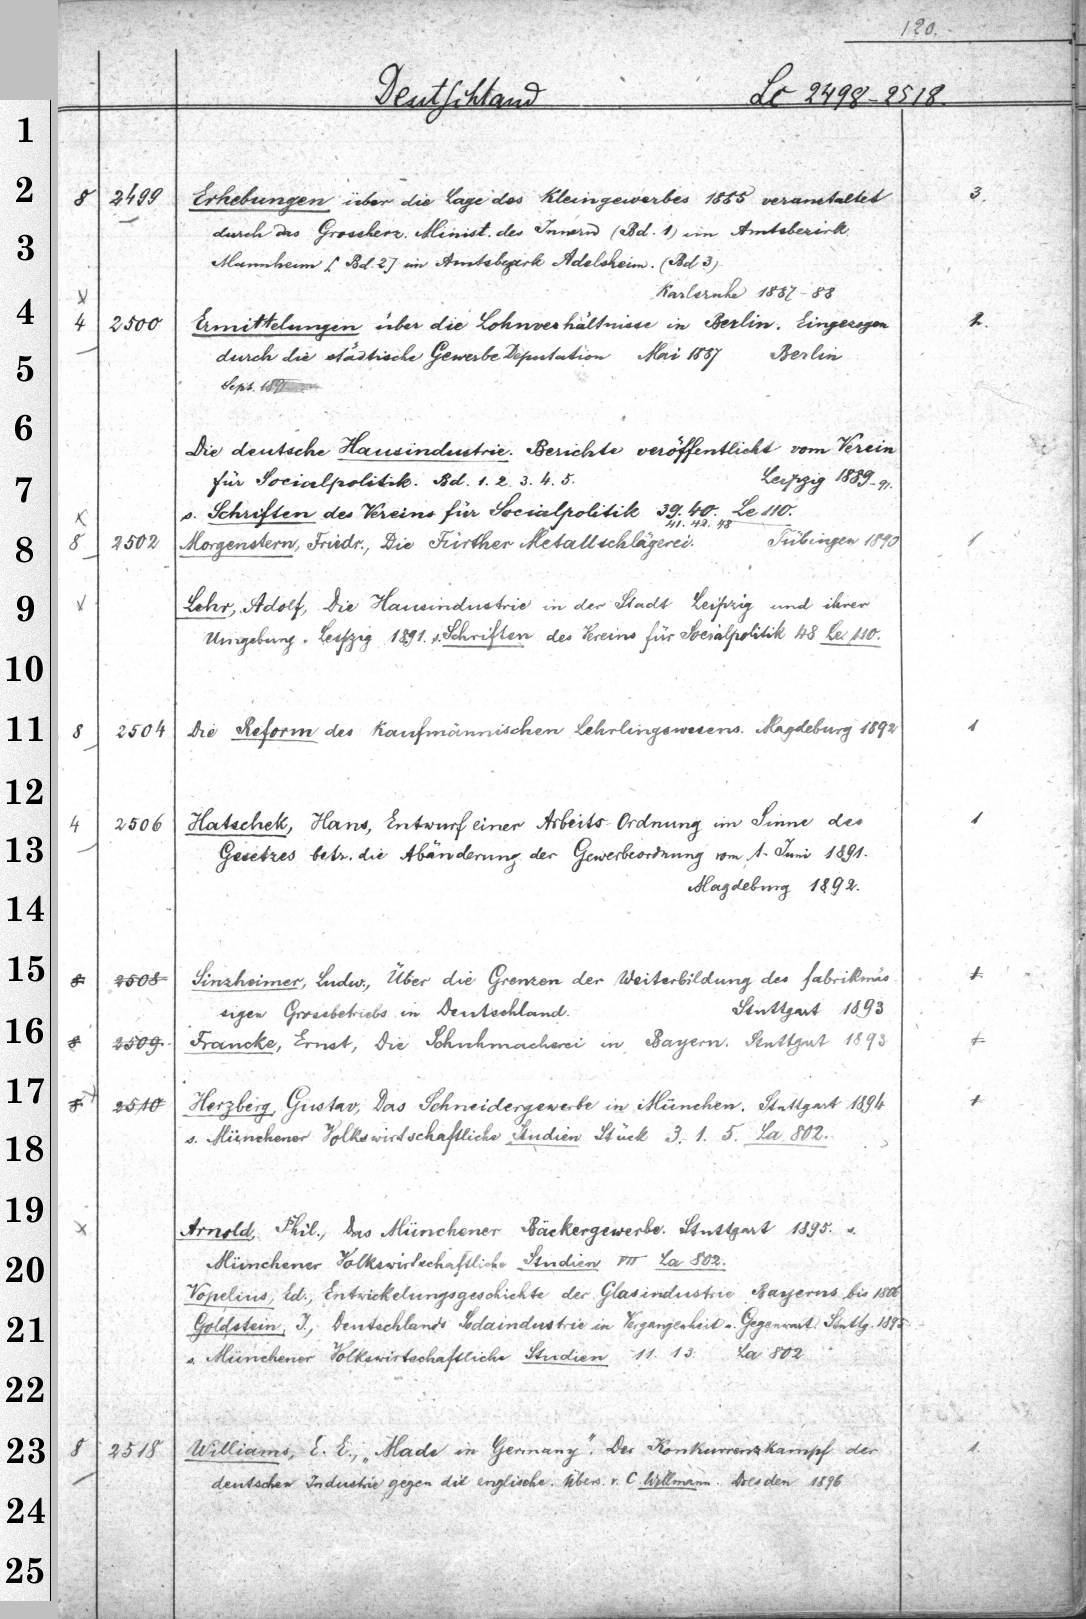 120.
Deutschland Lc 2498-2518.
1
2
8 2499 Erhebungen über die Lage des Kleingewerbes 1885 veranstaltet 3.
3
durch das Grossherz. Minist. des Innern (Bd. 1) im Amtsbezirk
Mannheim [Bd. 2] im Amtsbezirk Adelsheim. (Bd 3)
Karlsruhe 1887-88
4
4 2500 Ermittelungen über die Lohnverhältnisse in Berlin. Eingezogen 2.
5
durch die städtische Gewerbe Deputation Mai 1887 Berlin
Sept. 1891
6
Die deutsche Hausindustrie. Berichte veröffentlicht vom Verein
7
für Socialpolitik. Bd. 1. 2. 3. 4. 5. Leipzig 1889-91.
s. Schriften des Vereins für Socialpolitik 39. 40. Le 110.
41. 42. 48
8
8 2502 Morgenstern, Friedr., Die Fürther Metallschlägerei. Tübingen 1890 1
9
Lehr, Adolf, Die Hausindustrie in der Stadt Leipzig und ihrer
Umgebung. Leipzig 1891. s. Schriften des Vereins für Socialpolitik 48 Le 110.
10
11
8 2504 Die Reform des kaufmännischen Lehrlingswesens. Magdeburg 1892 1
12
4 2506 Hatschek, Hans, Entwurf einer Arbeits-Ordnung im Sinne des 1
13
Gesetzes betr. die Abänderung der Gewerbeordnung vom 1. Juni 1891.
Magdeburg 1892.
14
15
8 2508 Sinzheimer, Ludw., Über die Grenzen der Weiterbildung des fabrikmäs- 1
sigen Grossbetriebs in Deutschland. Stuttgart 1893
16
8 2509 Francke, Ernst, Die Schuhmacherei in Bayern. Stuttgart 1893 1
17
8 2510 Herzberg, Gustav, Das Schneidergewerbe in München. Stuttgart 1894 1
18
s. Münchener Volkswirtschaftliche Studien Stück 3. 1. 5. La 802.
19
Arnold, Phil., Das Münchener Bäckergewerbe. Stuttgart 1895. s.
20
Münchener Volkswirtschaftliche Studien VII La 802.
Vopelius, Ed., Entwickelungsgeschichte der Glasindustrie Bayerns bis 1806
21
Goldstein, J., Deutschlands Sodaindustrie in Vergangenheit u. Gegenwart. Stuttg. 1895
s. Münchener Volkswirtschaftliche Studien 11. 13. La 802
22
23
8 2518 Williams, E. E., „Made in Germany". Der Konkurrenzkampf der 1.
deutschen Industrie gegen die englische. Übers. v. C. Willmann. Dresden 1896
24
25